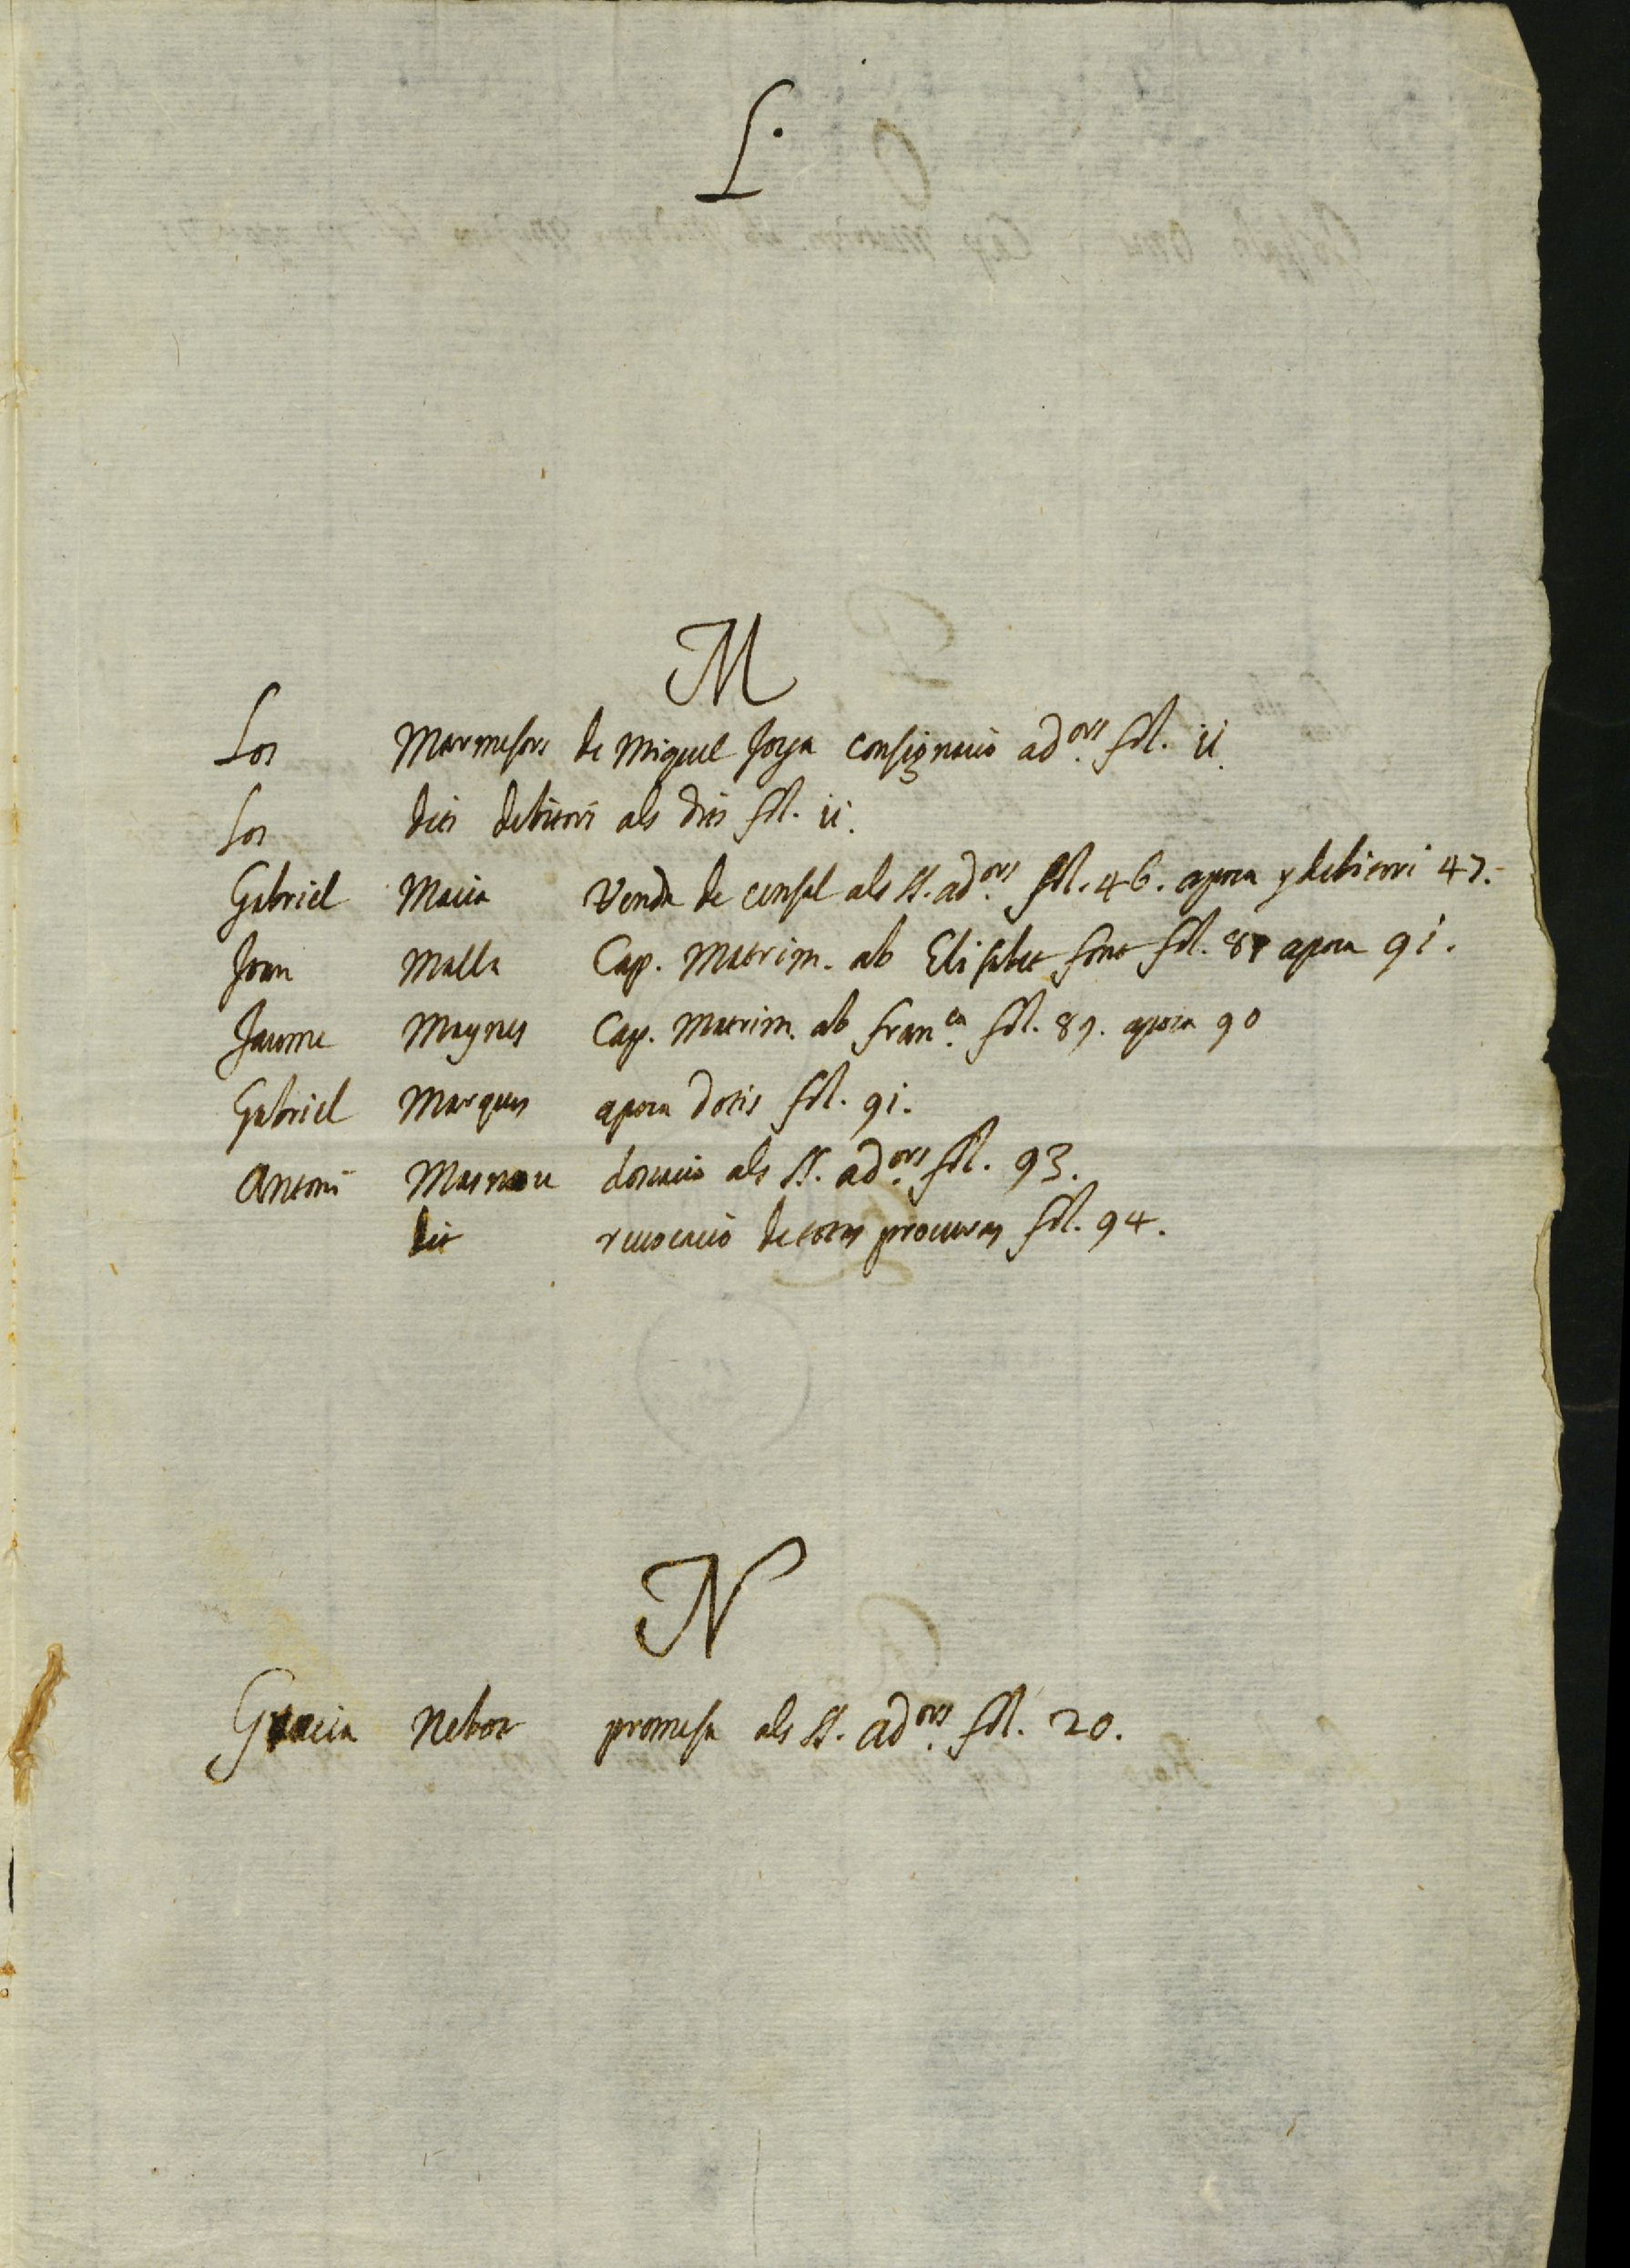 L.
M
Los Marmesors de Miquel Joya consignacio ad.ors fol. 11.
Los dits debitori als dits fol. 11.
Gabriel Macia Venda de censal als SS. ad.ors fol. 46. apoca y debitori 47.
Joan Malla Cap. Matrim. ab Elisabet font fol. 87 apoca 91.
Jaume Maynes Cap. Matrim. ab fran.ca fol. 89. apoca 90
Gabriel Marques apoca dotis fol. 91.
Antoni Masnou donacio als SS. ad.ors fol. 93.
dit revocacio de totas procuras fol. 94.
N
Gracia Nebot promesa als SS. ad.ors fol. 20.